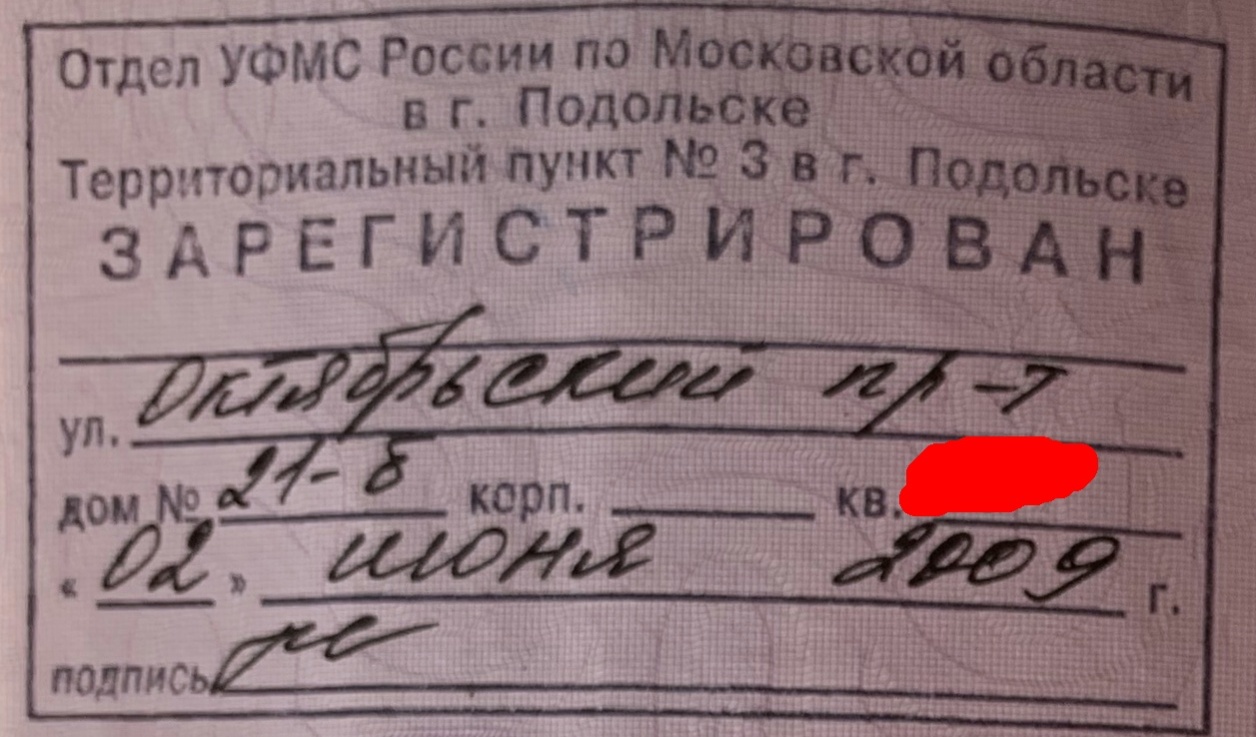 Отдел УФМС России по Московской области
в г. Подольске
Территориальный пункт № 3 в г. Подольске
ЗАРЕГИСТРИРОВАН
ул. Октябрьский пр-т
дом № 21-б корп. кв.
« 02 » июня 2009 г.
подпись